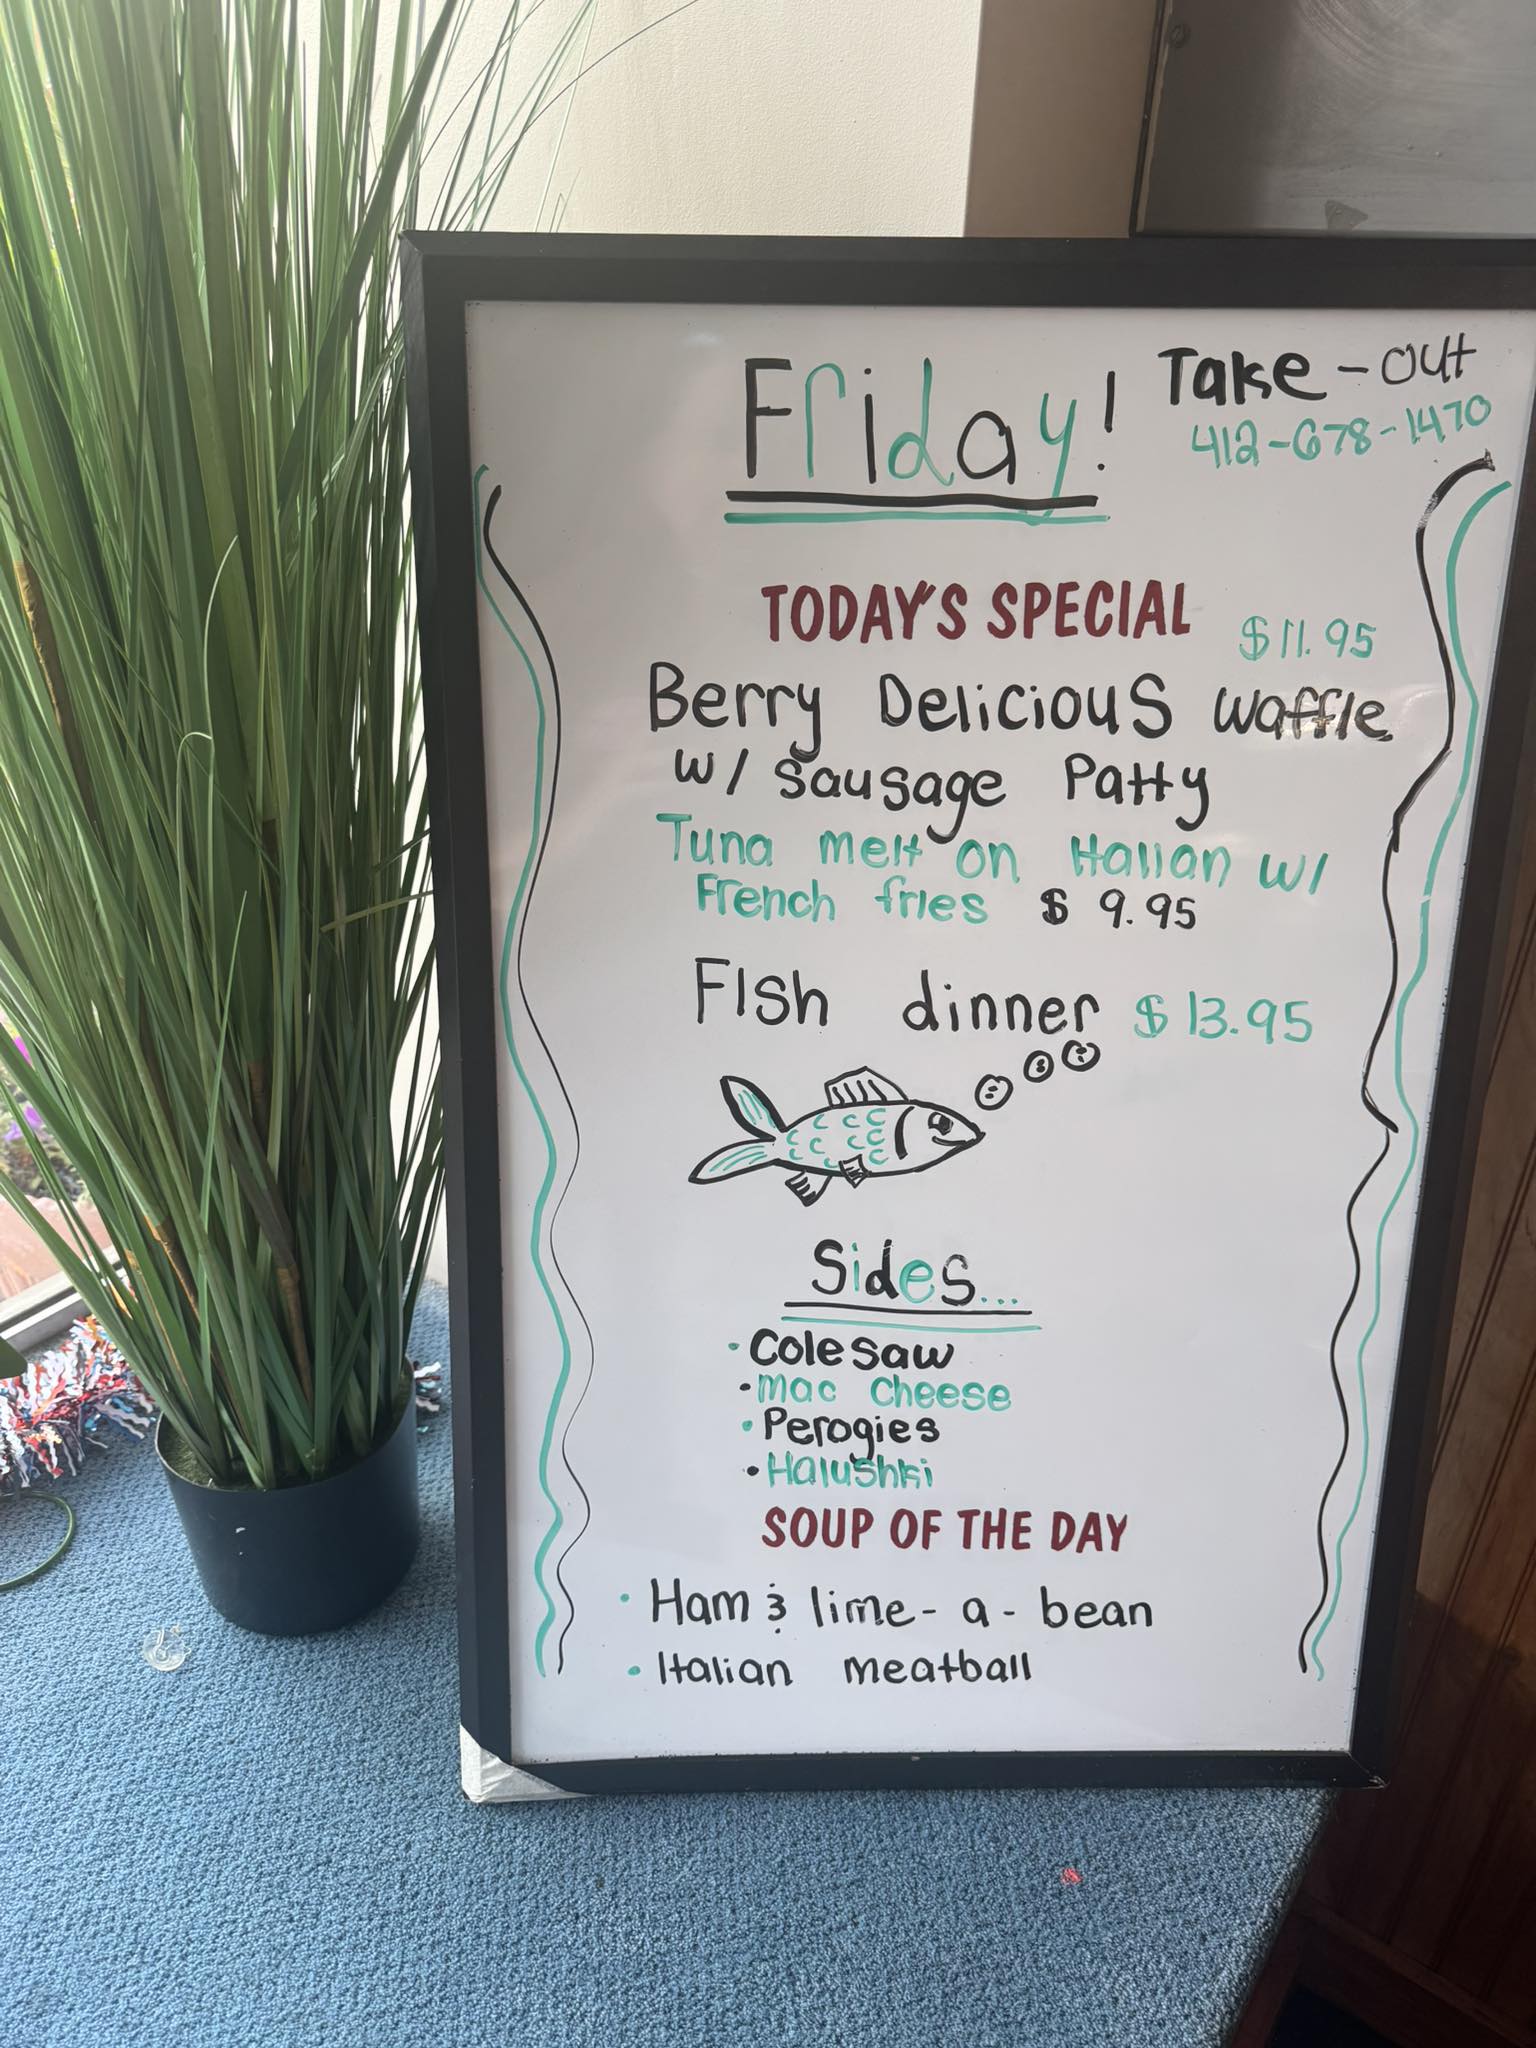 Friday!
Take-out
412-678-1470
TODAY'S SPECIAL
$11.95
Berry Delicious waffle
w/ Sausage Patty
Tuna melt on Italian w/
French fries $9.95
Fish dinner $13.95
Sides...
• Colesaw
• Mac cheese
• Perogies
• Halushki
SOUP OF THE DAY
• Ham & lime-a-bean
• Italian meatball